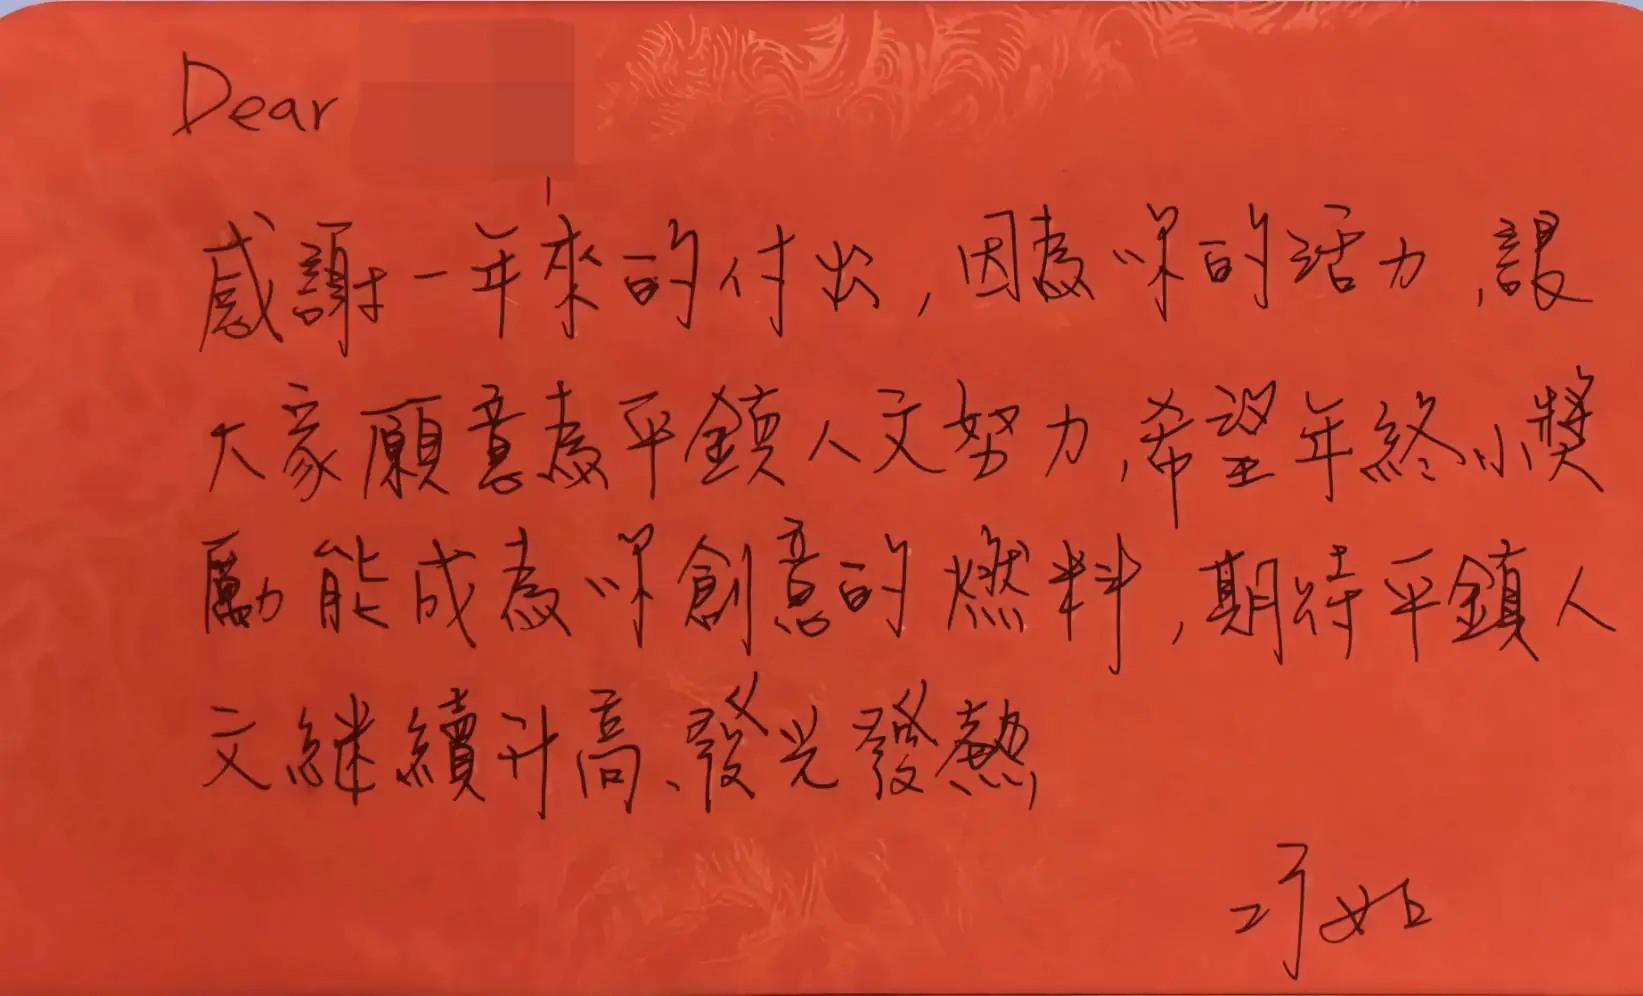 Dear
感謝一年來的付出,因為咪的活力,讓
大家願意為平鎮人文努力,希望年終小獎
勵能成為咪創意的燃料,期待平鎮人
文繼續升高、發光發熱,
巧姐